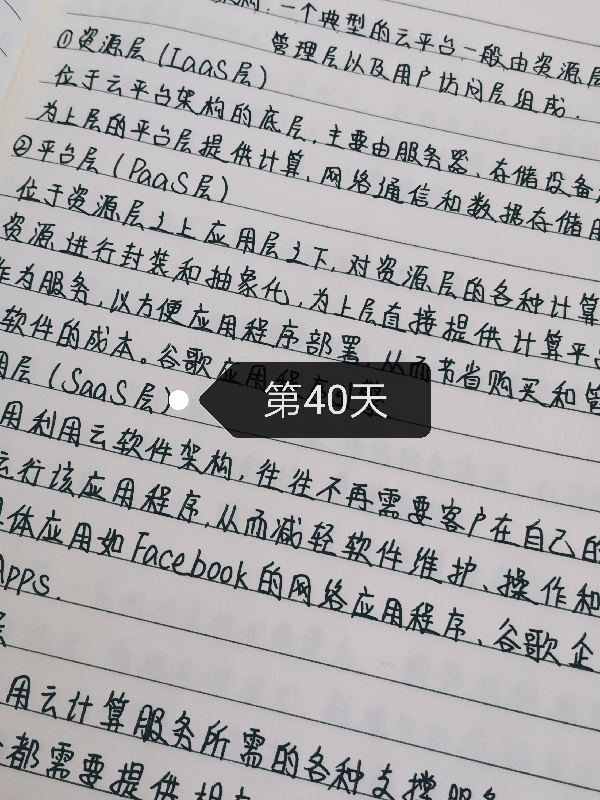 构: 一个典型的云平台一般由资源层
管理层以及用户访问层组成.
①资源层(IaaS层)
位于云平台架构的底层,主要由服务器、存储设备
为上层的平台层提供计算、网络通信和数据存储
②平台层(PaaS层)
位于资源层之上应用层之下,对资源层的各种计算
资源进行封装和抽象化,为上层直接提供计算平
作为服务,以方便应用程序部署,从而节省购买和管
软件的成本。谷歌
用层(SaaS层)
第40天
用利用云软件架构,往往不再需要客户在自己的
运行该应用程序,从而减轻软件维护、操作和
体应用如Facebook的网络应用程序、谷歌企
Apps.
层
用云计算服务所需的各种支撑服务
都需要提供相